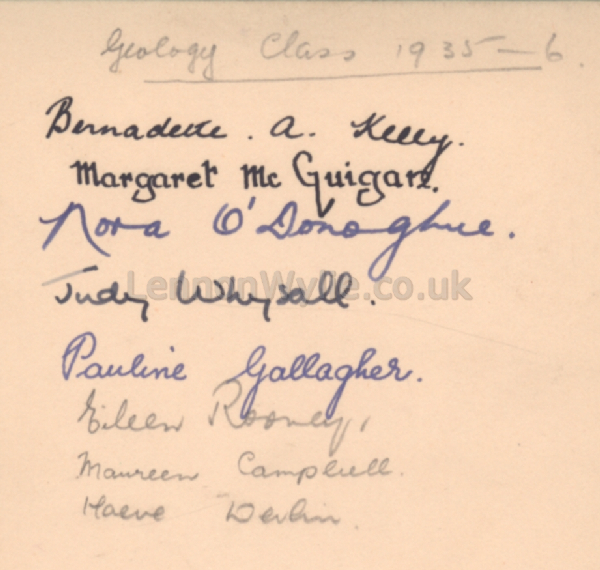 Geology Class 1935-6.
Bernadette. A. Kelly.
Margaret Mc Guigan.
Nora O'Donoghue.
Judy Whysall.
LennonWylie.co.uk
Pauline Gallagher.
Eileen Rooney,
Maureen Campbell.
Maeve Devlin.